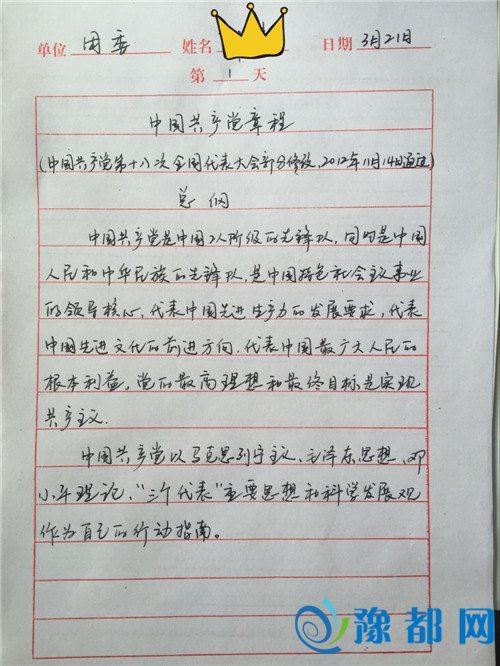 单位 团委 姓名 日期 3月21日
第 1 天
中国共产党章程
(中国共产党第十八次全国代表大会部分修改,2012年11月14日通过)
总纲
中国共产党是中国工人阶级的先锋队,同时是中国
人民和中华民族的先锋队,是中国特色社会主义事业
的领导核心,代表中国先进生产力的发展要求,代表
中国先进文化的前进方向,代表中国最广大人民的
根本利益。党的最高理想和最终目标是实现
共产主义.
中国共产党以马克思列宁主义、毛泽东思想、邓
小平理论、“三个代表”重要思想和科学发展观
作为自己的行动指南。
豫都网